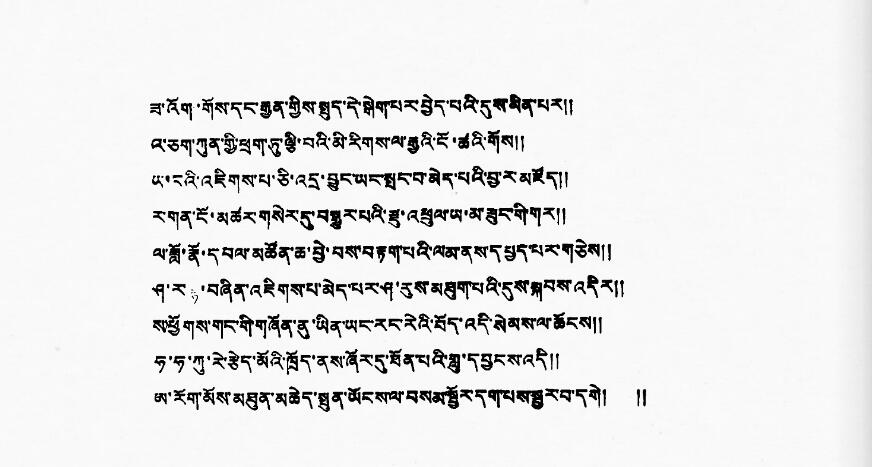 ཟ་འོག་གོས་དང་རྒྱན་གྱིས་སྤུད་དེ་སྒེག་པར་བྱེད་པའི་དུས་མིན་པར།།
འ་ཅག་ཀུན་གྱི་ཕྲག་ཏུ་ལྕི་བའི་མི་རིགས་ལ་རྒྱའི་ངོ་ཚའི་གོས།།
ཡ་ངའི་འཇིགས་པ་ཅི་འདྲ་བྱུང་ཡང་སྤང་བ་མེད་པའི་བྱ་ར་མཛོད།།
ར་གན་ངོ་མཚར་གསེར་དུ་བསྒྱུར་པའི་རྫུ་འཕྲུལ་ཡ་མ་ཟུང་གི་གར།།
ལ་གློ་རྣོ་ད་བལ་མཚོན་ཆ་བྱེ་བས་བརྟག་པའི་ལམ་ནས་དཔྱད་པར་གཅེས།།
ཤ་ར་བཞིན་འཇིགས་པ་མེད་པར་ཤ་རུས་མཐུག་པའི་དུས་སྐབས་འདིར།།
ས་ཕྱོགས་གང་གི་གཞོན་ནུ་ཡིན་ཡང་རང་རེའི་བོད་འདི་སེམས་ལ་ཆོངས།།
ཧ་ཧ་ཀུ་རེ་རྩེད་མོའི་ཁྲོད་ནས་ཞོར་དུ་ཐོན་པའི་གླུ་དབྱངས་འདི།།
ཨ་རོག་མོས་མཐུན་མཆེད་སྤུན་ཡོངས་ལ་བསམ་སྦྱོར་དག་པས་སྦྱར་བ་དགེ། །།